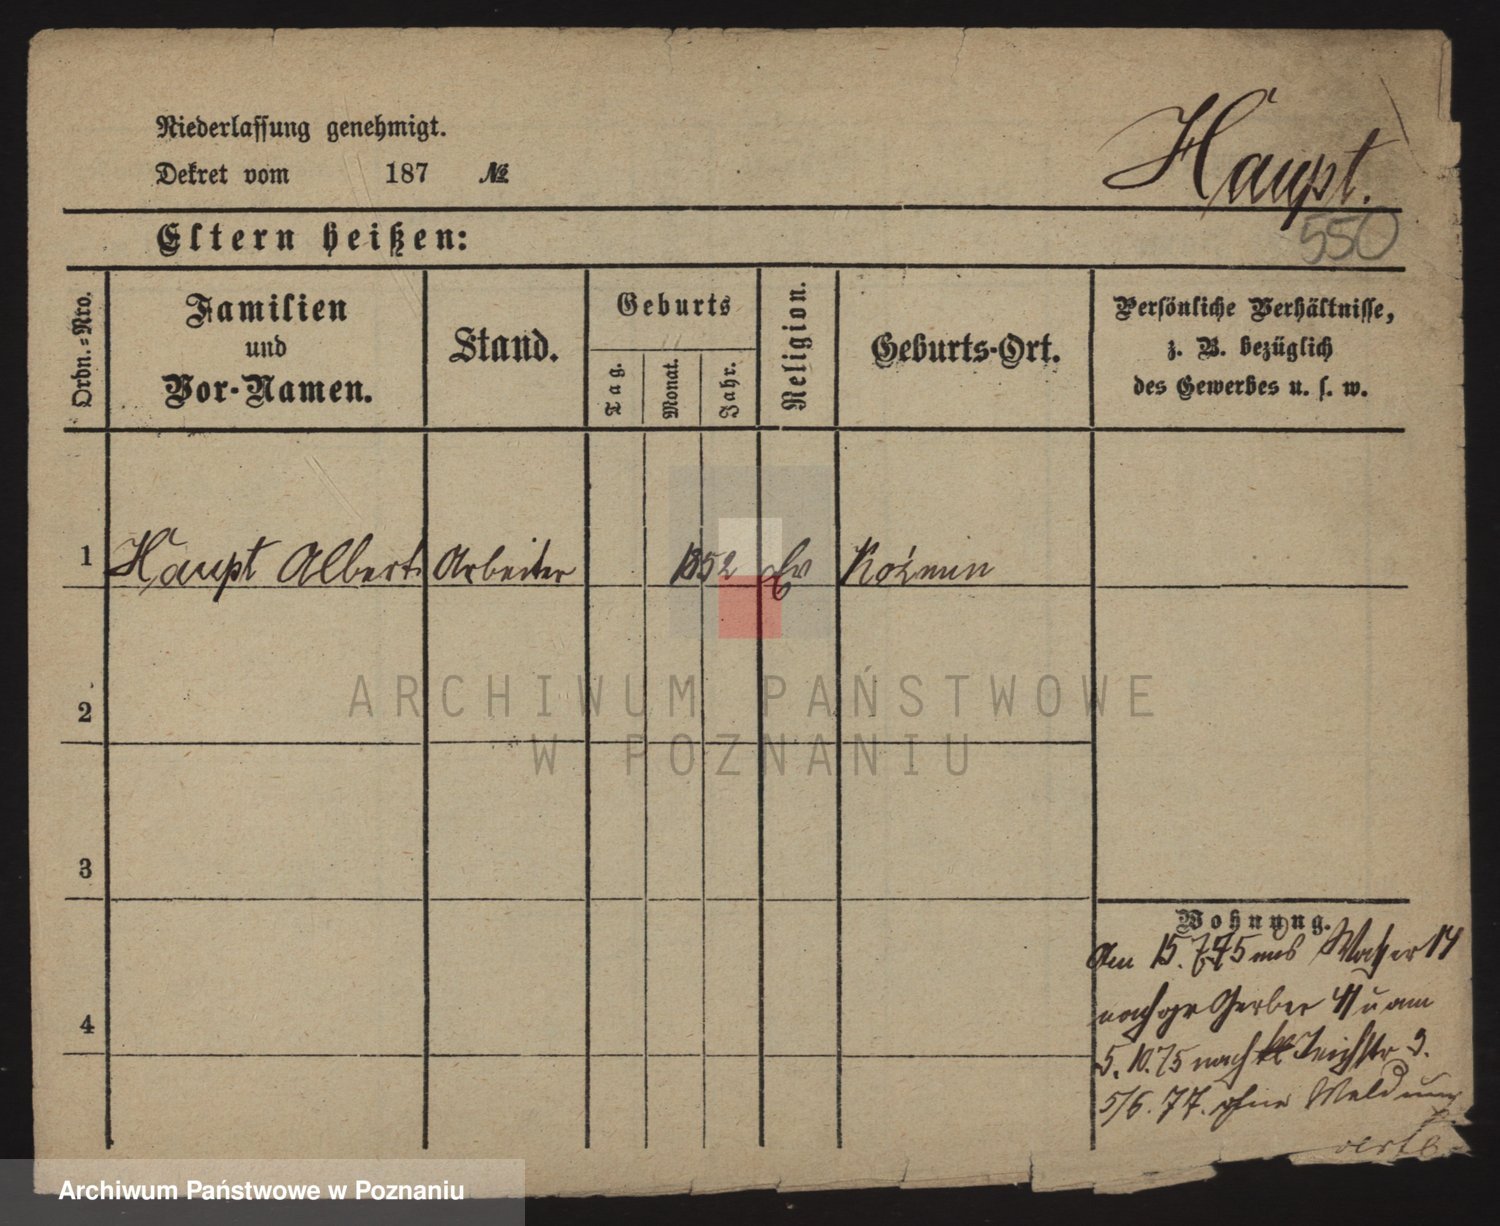 Niederlassung genehmigt.
Dekret vom 187 №
Haupt.
550
Eltern heißen:
Ordn.-Nro.
Familien
und
Vor-Namen.
Stand.
Geburts
Tag.
Monat.
Jahr.
Religion.
Geburts-Ort.
Persönliche Verhältnisse,
z. B. bezüglich
des Gewerbes u. s. w.
1 Haupt Albert Arbeiter 1852 Ev Koźmin
2
3
4
Wohnung.
Am 15.7.75 aus Wasser 14
nach gr Gerber 41 u am
5.10.75 nach Teichstr 3.
5/6.77. ohne Meldung
ARCHIWUM PAŃSTWOWE
W POZNANIU
Archiwum Państwowe w Poznaniu